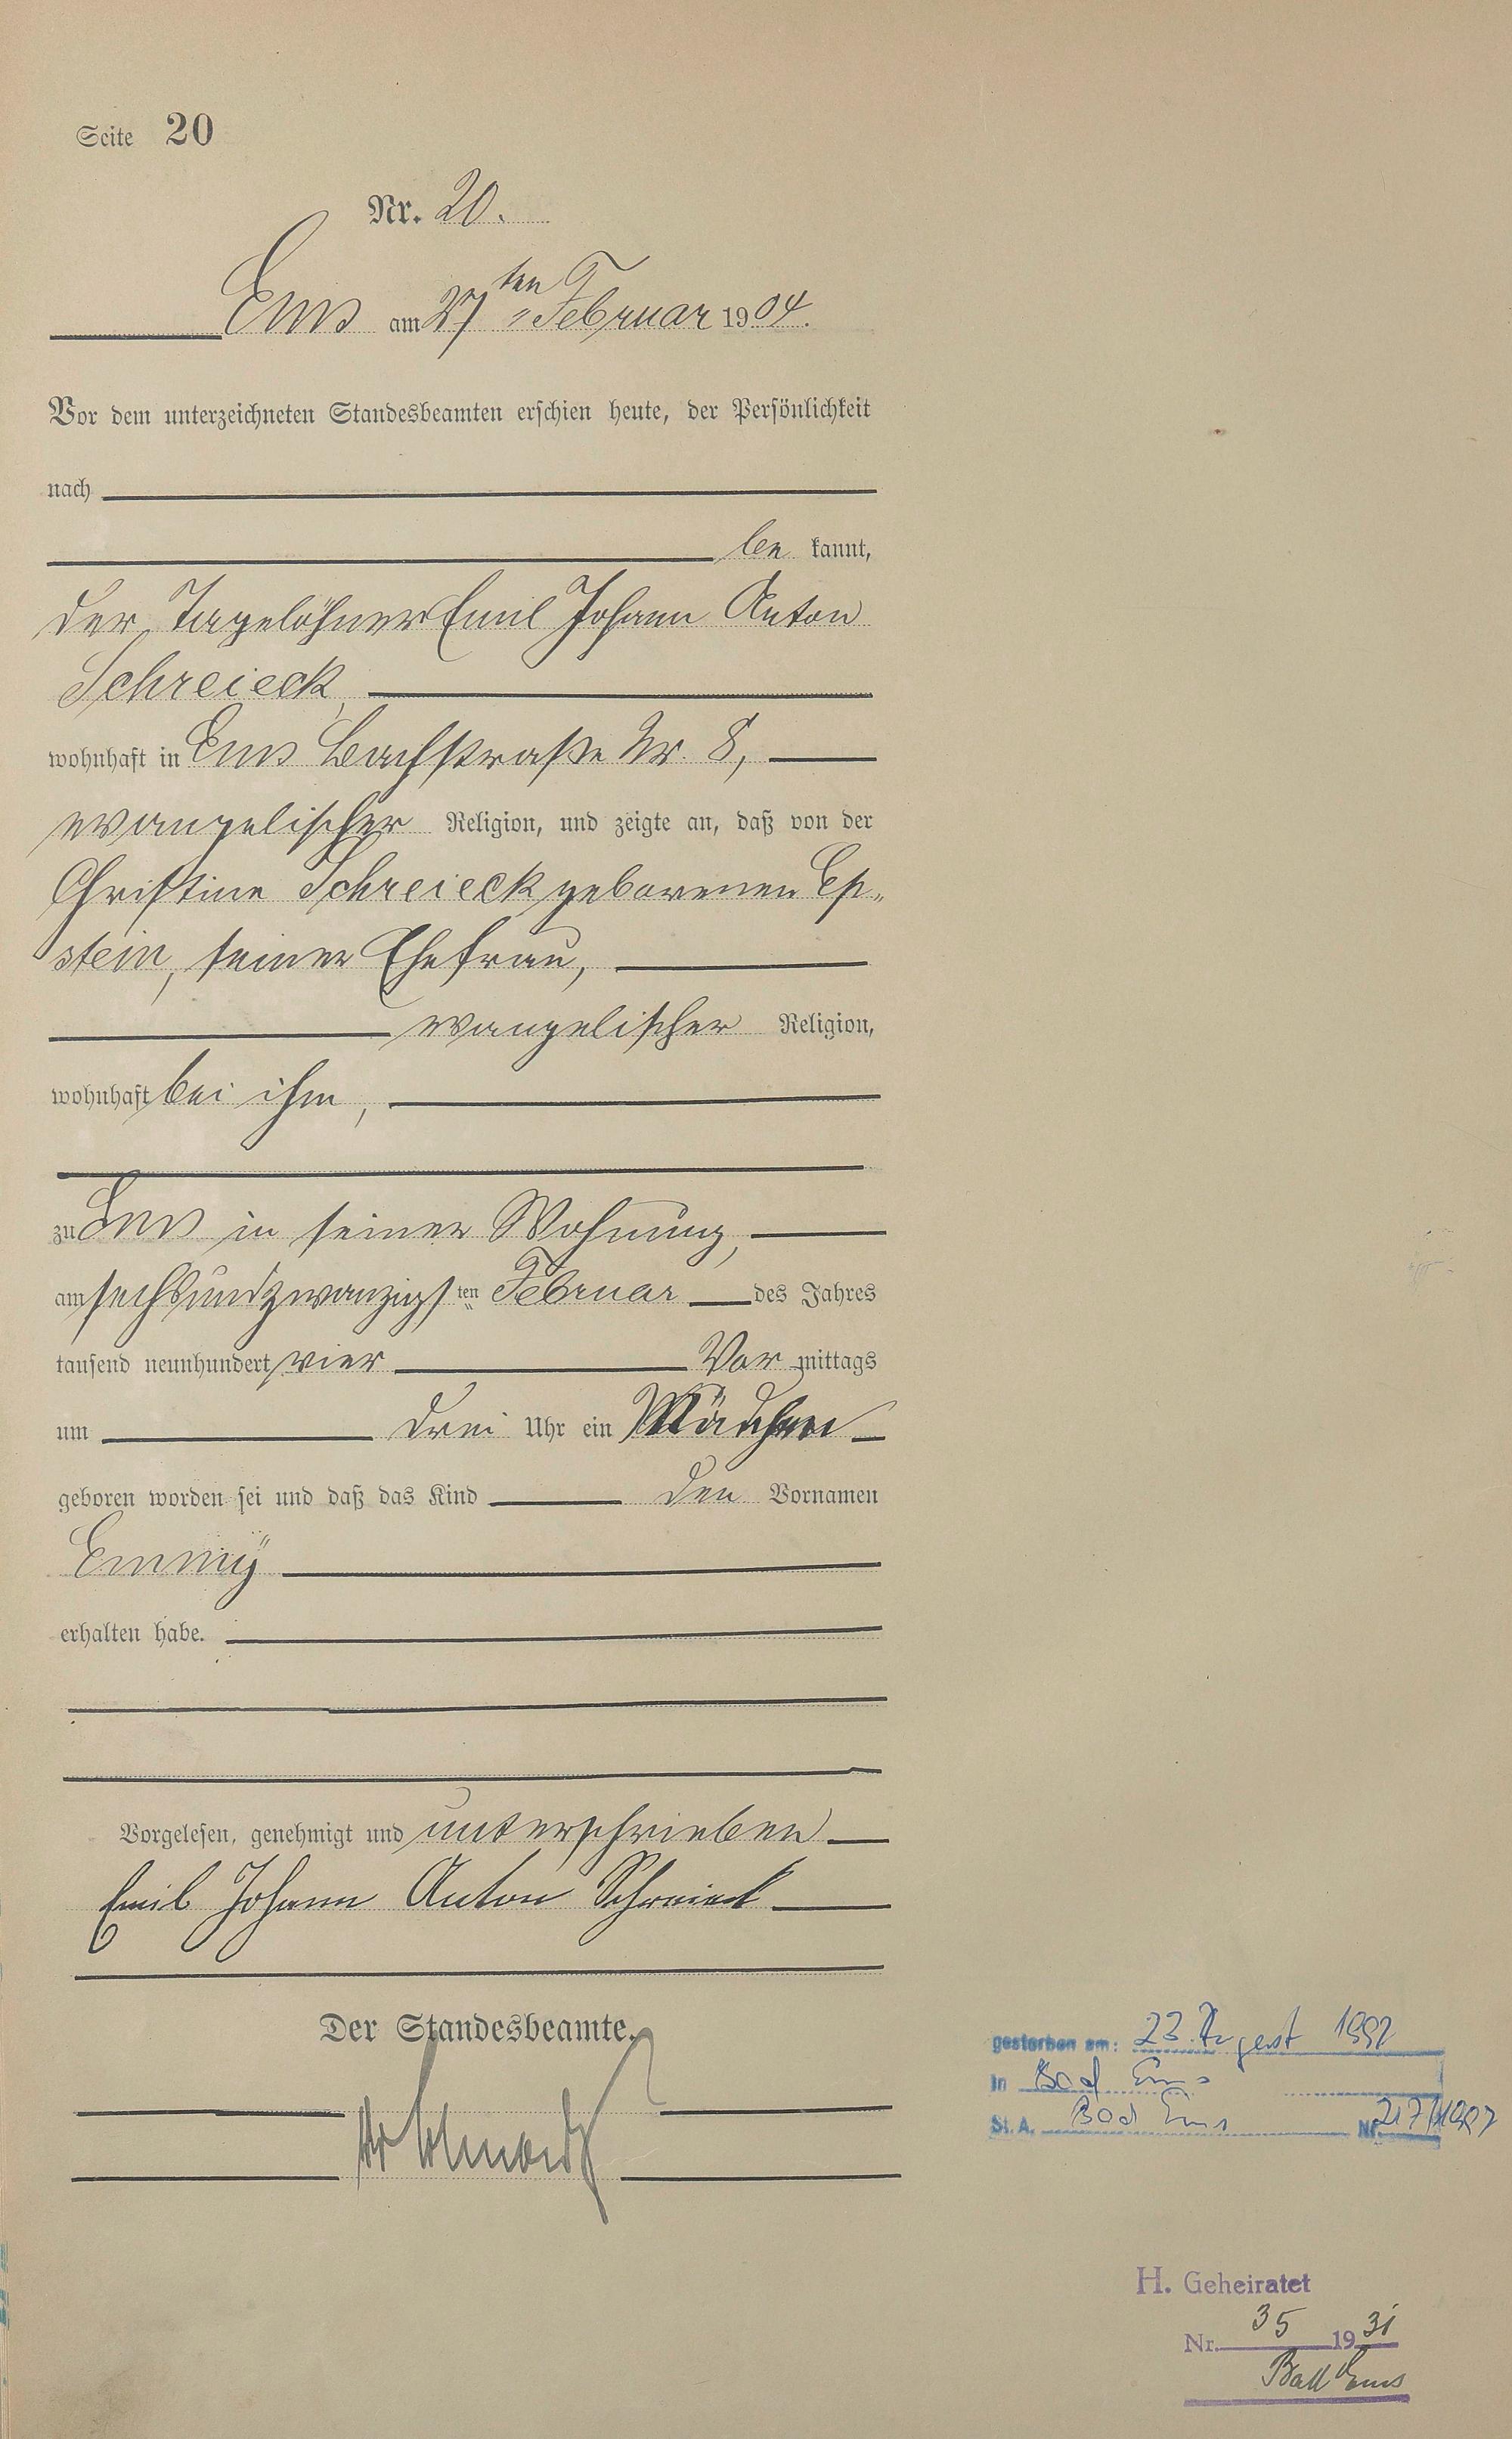 Seite 20
Nr. 20.
Ems am 27ten Februar 1904.
Vor dem unterzeichneten Standesbeamten erschien heute, der Persönlichkeit
nach
be kannt,
der Tagelöhner Emil Johann Anton
Schreieck,
wohnhaft in Ems Bachstraße Nr. 8,
evangelischer Religion, und zeigte an, daß von der
Christine Schreieck geborenen Ep„
stein, seiner Ehefrau,
evangelischer Religion,
wohnhaft bei ihm,
zu Ems in seiner Wohnung,
am sechsundzwanzigsten Februar des Jahres
tausend neunhundert vier Vor mittags
um drei Uhr ein Mädchen
geboren worden sei und daß das Kind den Vornamen
Emmÿ
erhalten habe.
Vorgelesen, genehmigt und unterschrieben
Emil Johann Anton Schreieck
Der Standesbeamte.
gestorben am: 23. August
in Bad Ems
St. A. Bad Ems Nr.
H. Geheiratet
Nr. 35 1931
Bad Ems